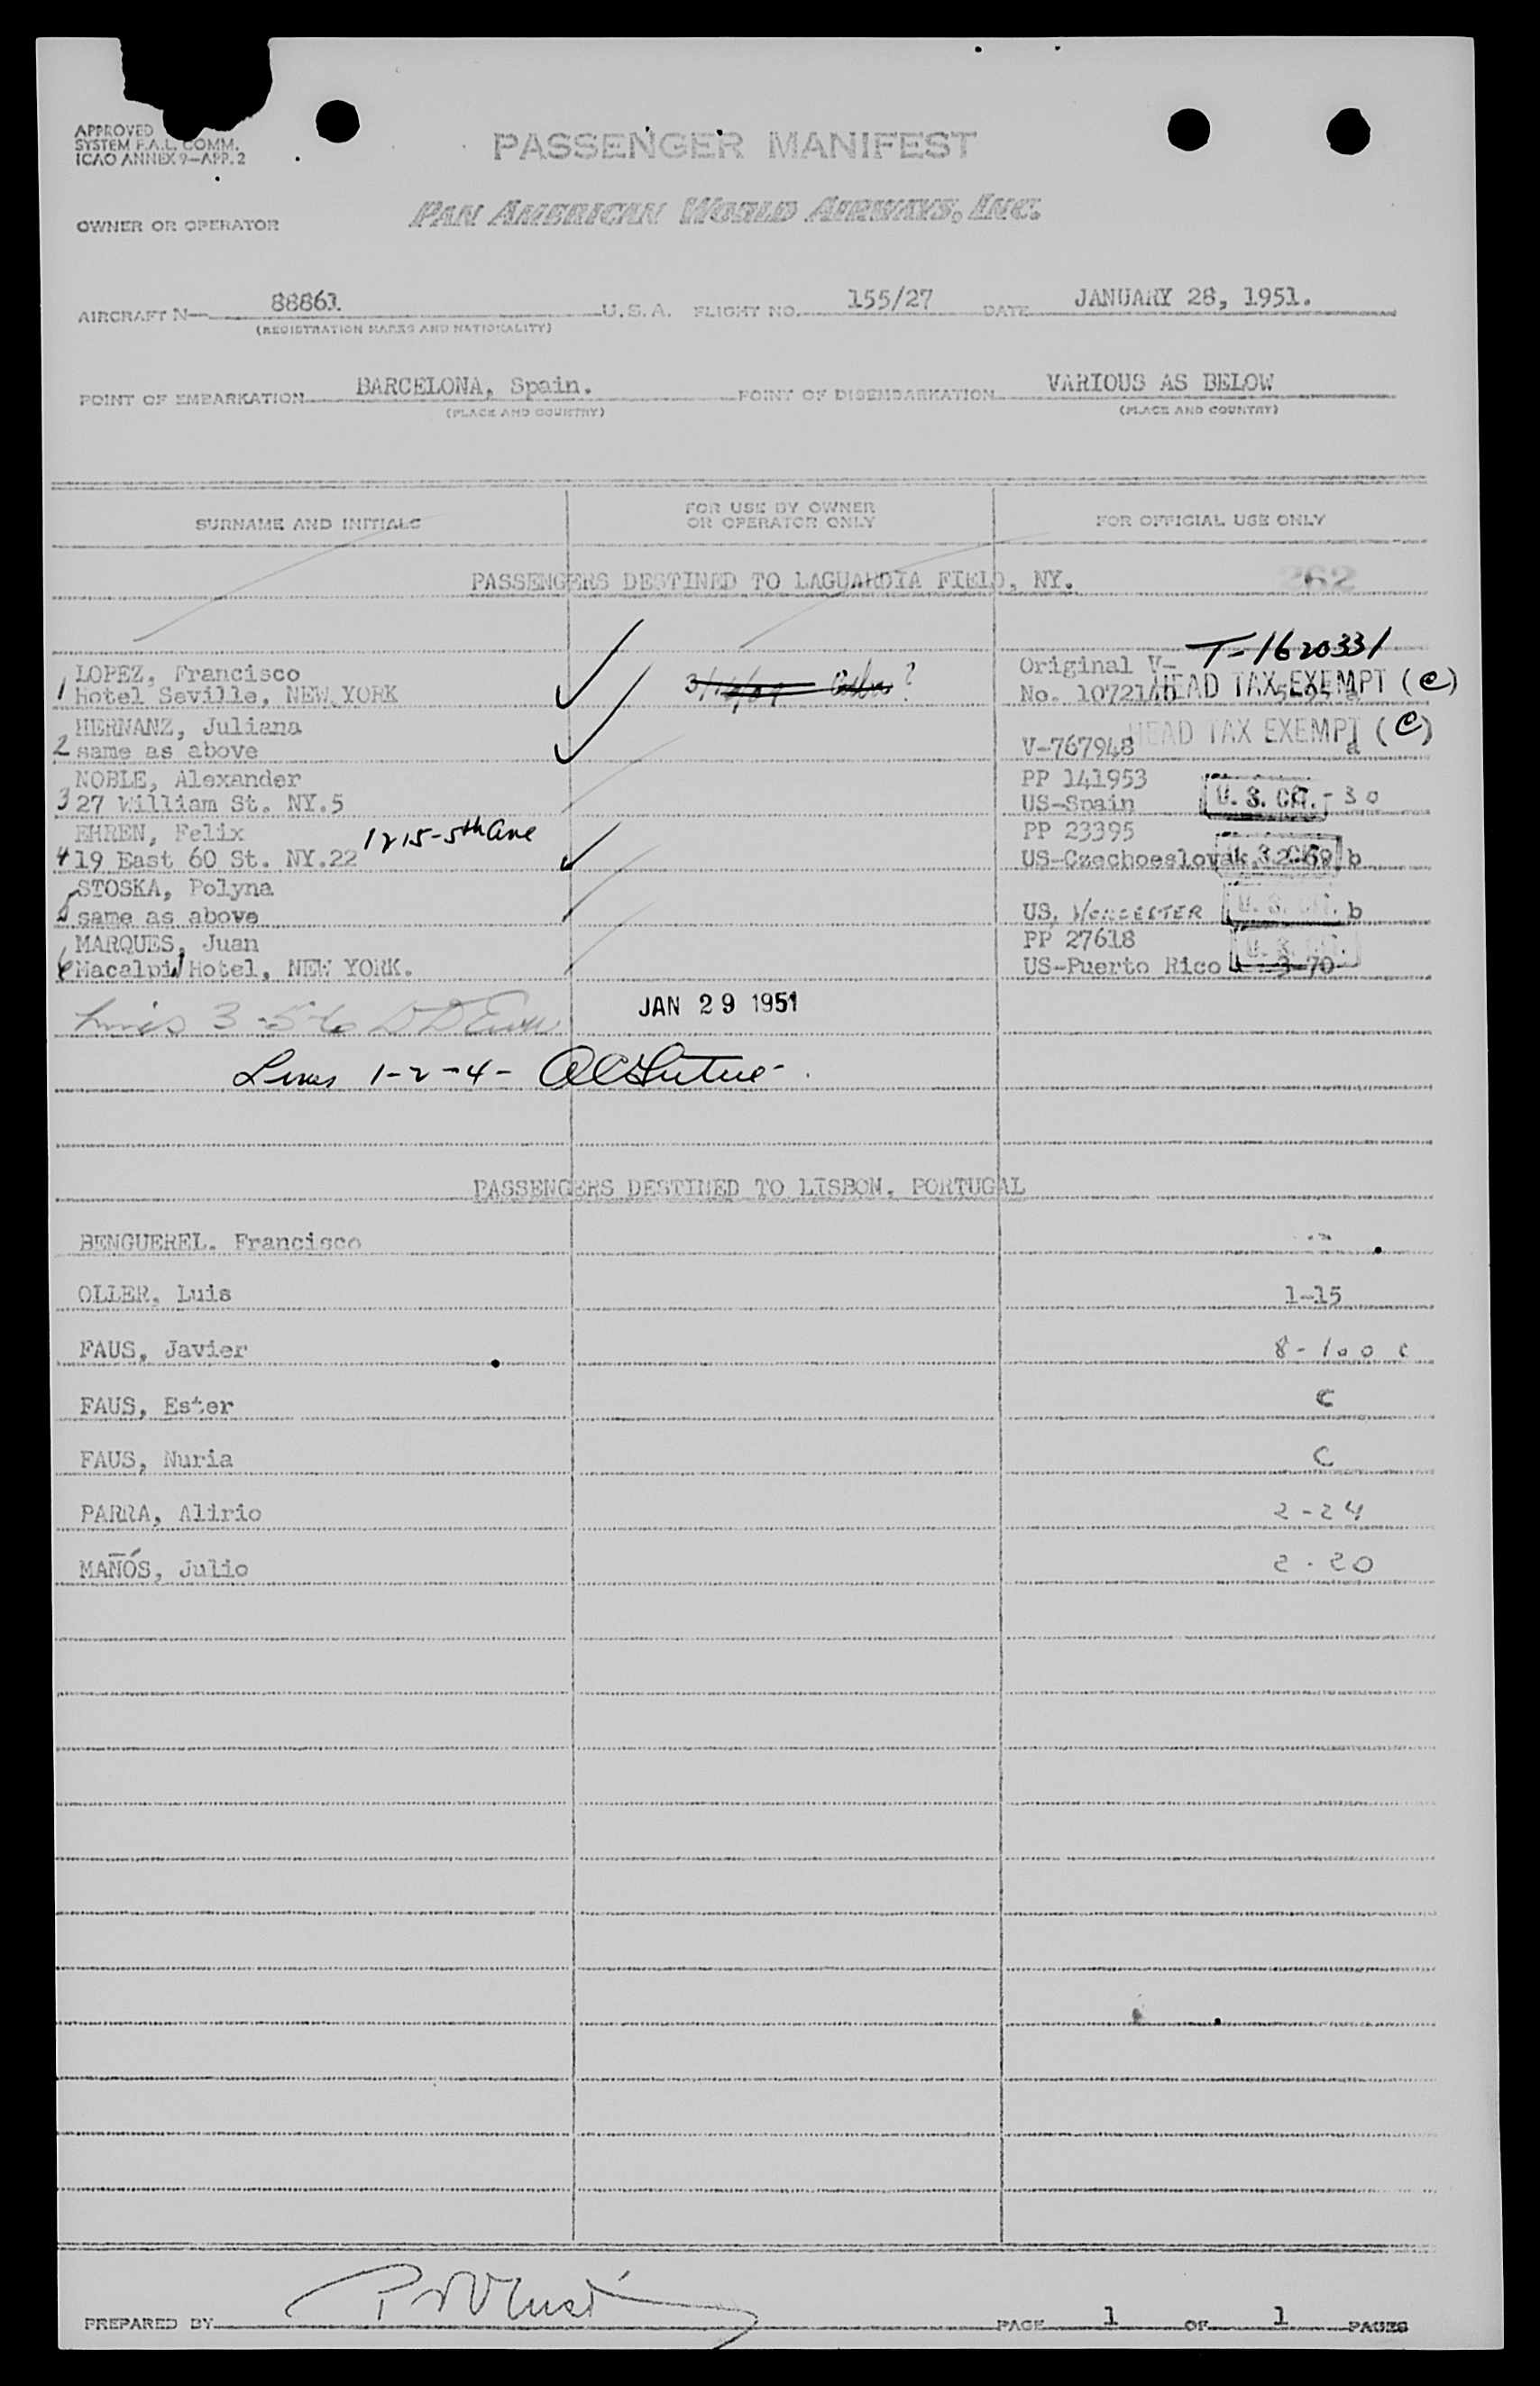 APPROVED
SYSTEM F.A.L. COMM.
ICAO ANNEX 9—APP. 2
PASSENGER MANIFEST
OWNER OR OPERATOR PAN AMERICAN WORLD AIRWAYS, INC.
AIRCRAFT N— 88861 U.S.A. FLIGHT NO. 155/27 DATE JANUARY 28, 1951.
(REGISTRATION MARKS AND NATIONALITY)
POINT OF EMBARKATION BARCELONA, Spain. POINT OF DISEMBARKATION VARIOUS AS BELOW
(PLACE AND COUNTRY) (PLACE AND COUNTRY)
SURNAME AND INITIALS FOR USE BY OWNER OR OPERATOR ONLY FOR OFFICIAL USE ONLY
PASSENGERS DESTINED TO LAGUARDIA FIELD, NY. 262
LOPEZ, Francisco Original V- T-1620331
1 Hotel Seville, NEW YORK ? No. HEAD TAX EXEMPT (C)
HERNANZ, Juliana HEAD TAX EXEMPT (C)
2 same as above V-767948 a
NOBLE, Alexander PP 141953
3 27 William St. NY.5 US-Spain U. S. CIT. - 30
EHREN, Felix 1215-5th Ave PP 23395
4 19 East 60 St. NY.22 US-Czechoeslovak b
STOSKA, Polyna U. S. CIT.
5 same as above US, WORCESTER b
MARQUES, Juan PP 27618 U. S. CIT.
6 Macalpin Hotel, NEW YORK. US-Puerto Rico 3-70
Lines 3-5-6
JAN 29 1951
Lines 1-2-4-
PASSENGERS DESTINED TO LISBON, PORTUGAL
BENGUEREL. Francisco
OLLER, Luis 1-15
FAUS, Javier 8-100 c
FAUS, Ester C
FAUS, Nuria C
PARRA, Alirio 2-24
MAÑÓS, Julio 2-20
PREPARED BY PAGE 1 OF 1 PAGES